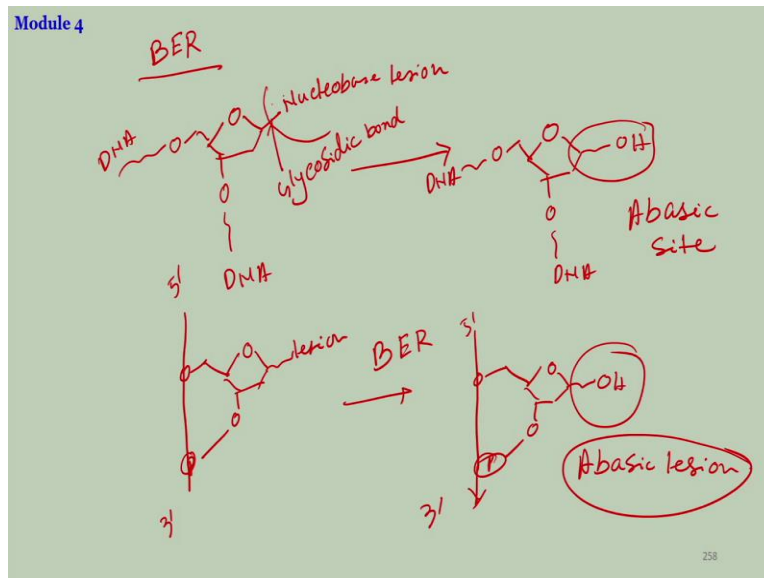 Module 4
BER
Nucleobase lesion
Glycosidic bond
DNA
O
O
O
DNA
DNA
O
O
OH
O
DNA
Abasic
site
5'
O
lesion
O
O
P
3'
BER
5'
O
OH
O
O
P
3'
Abasic lesion
258